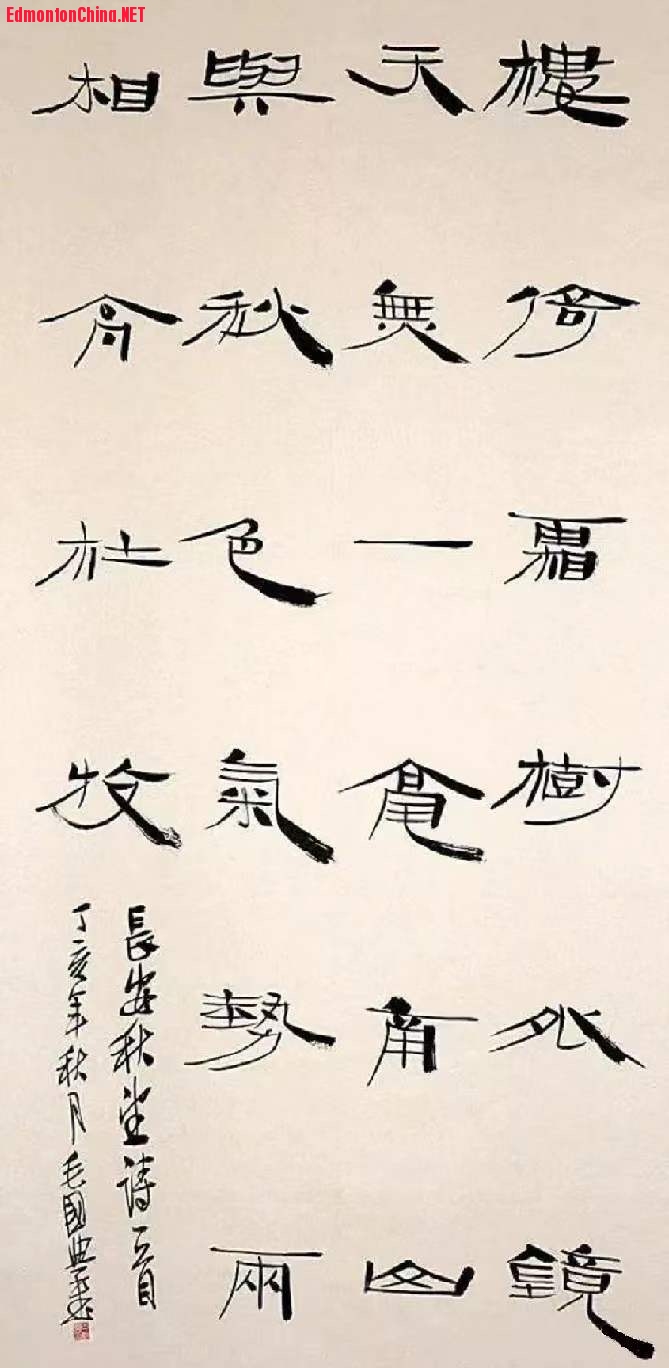 EdmontonChina.NET
樓倚霜樹外鏡
天無一毫南山
與秋色氣勢兩
相高杜牧
長安秋望詩一首
丁亥年秋月毛國典書